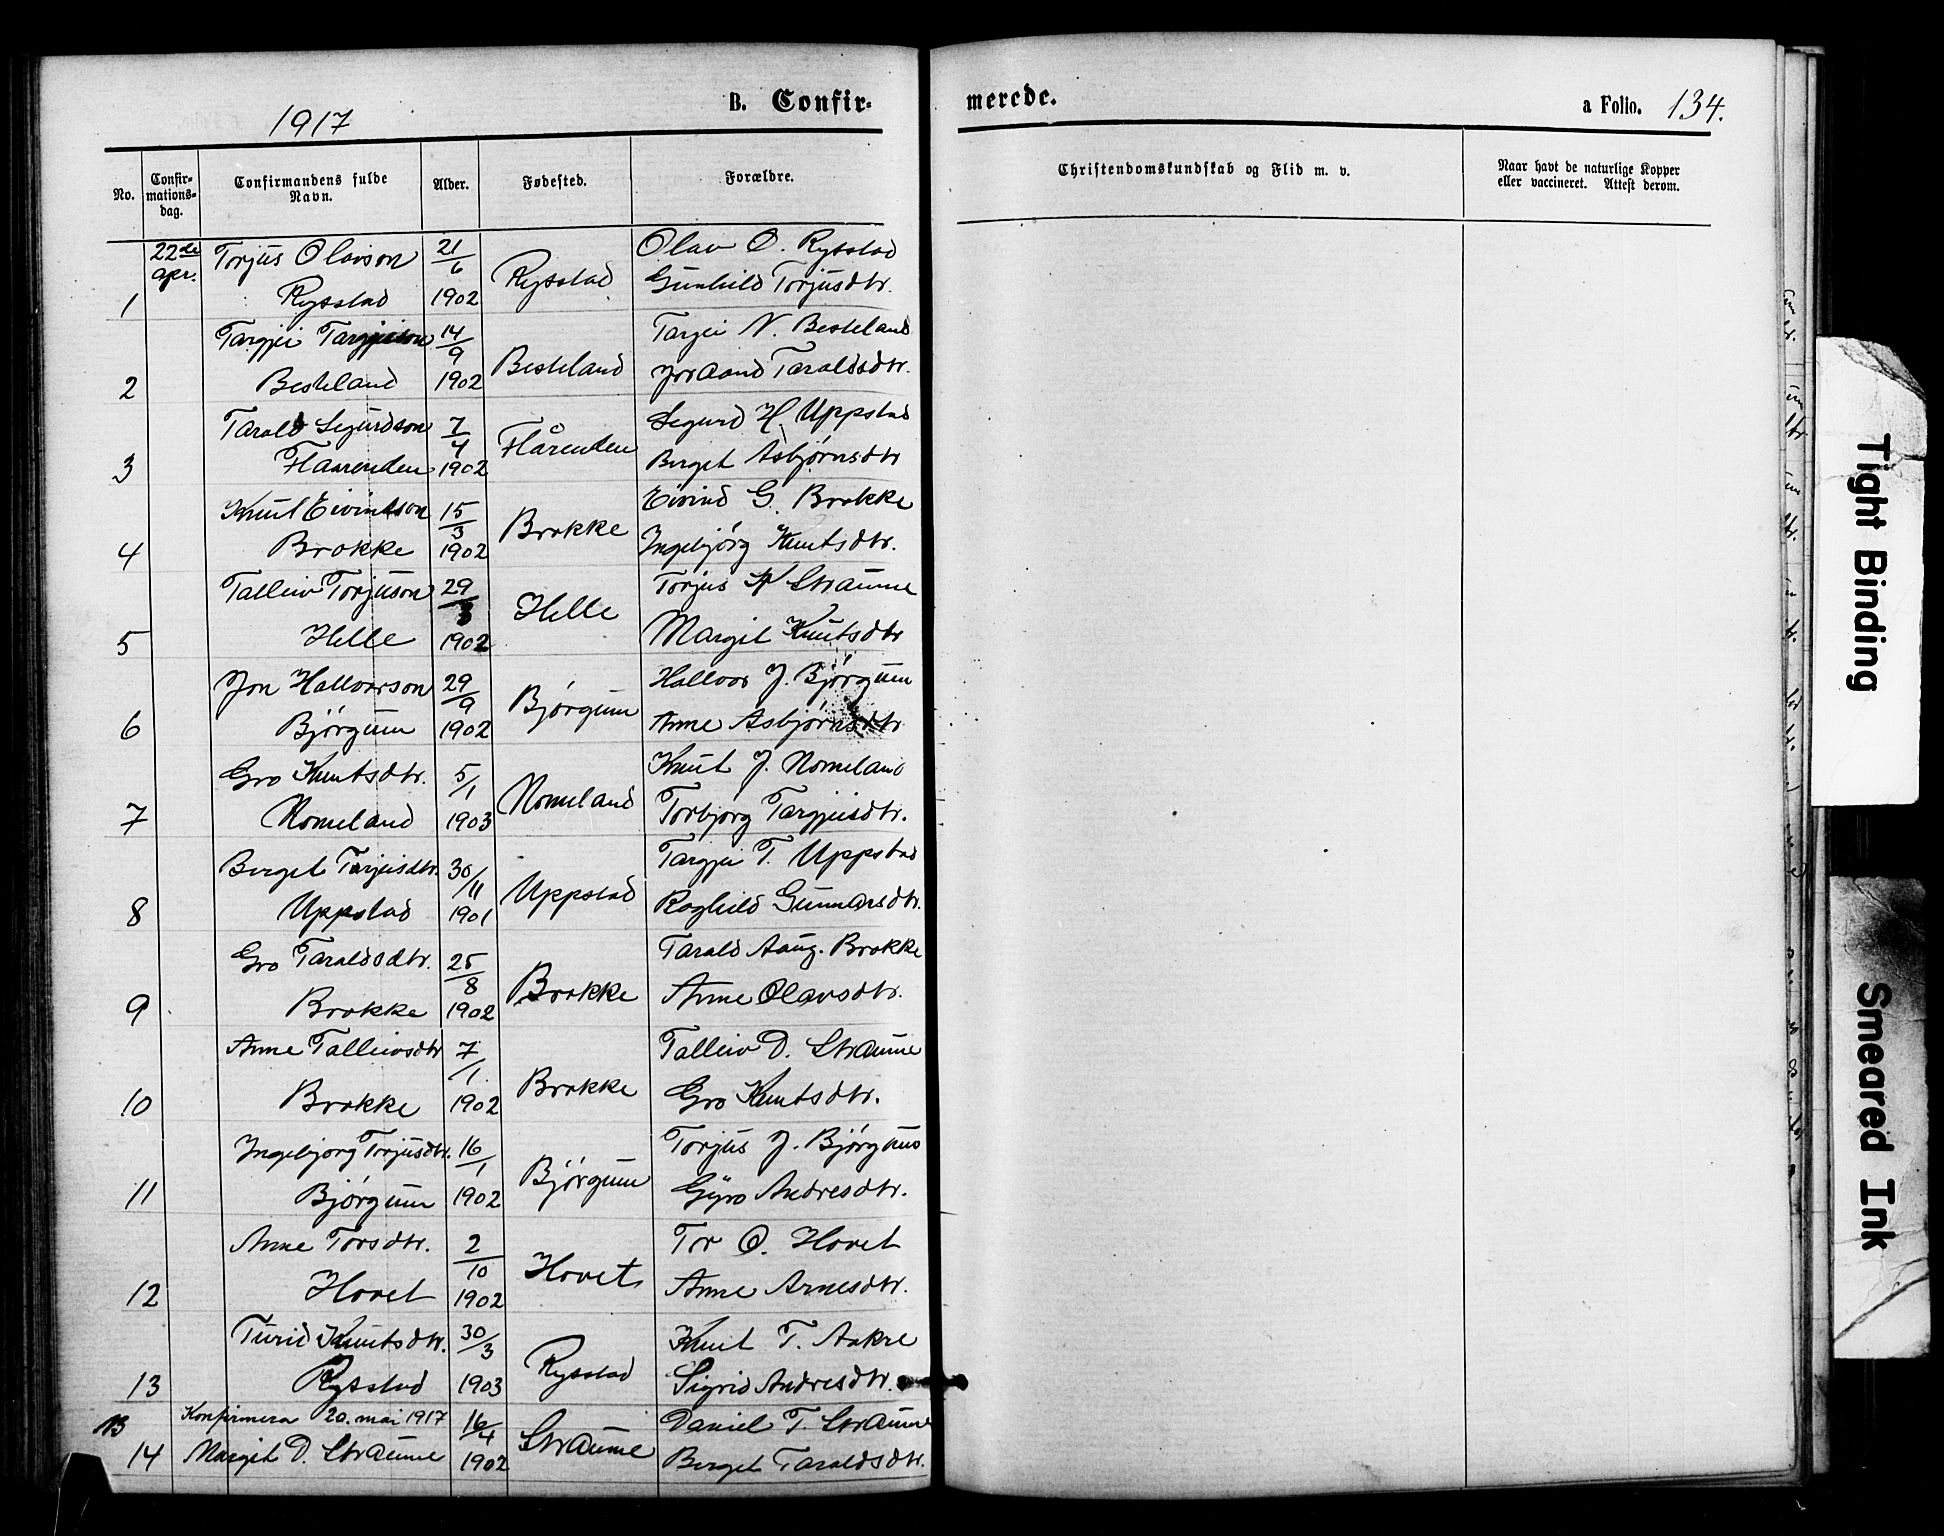 1917
B. Confir-
merede.
a Folio. 134.
No.
Confir-
mations-
dag.
Confirmandens fulde
Navn.
Alder.
Fødested.
Forældre.
Christendomskundskab og Flid m. v.
Naar havt de naturlige Kopper
eller vaccineret. Attest derom.
1 22de apr. Torjus Olavson Rysstad 21/6 1902 Rysstad Olav O. Rysstad
Gunhild Torjusdtr.
2 Targjei Targjeison Besteland 14/9 1902 Besteland Targei N. Besteland
Joraand Taraldsdtr.
3 Tarald Segurdson Flaarenden 7/4 1902 Flårenden Segurd H. Uppstad
Berget Asbjørnsdtr
4 Knut Eivindson Brokke 15/3 1902 Brokke Eivind G. Brokke
Ingebjørg Knutsdtr.
5 Talleiv Torjuson Helle 29/3 1902 Helle Torjus Straume
Margit Knutsdtr
6 Jon Hallvorson Bjørgum 29/9 1902 Bjørgum Hallvor J. Bjørgum
Anne Asbjørnsdtr
7 Gro Knutsdtr. Nomeland 5/1 1903 Nomeland Knut J. Nomeland
Torbjorg Targjeisdtr.
8 Berget Tarjeisdtr. Uppstad 30/11 1901 Uppstad Targjei T. Uppstad
Raghild Gunnarsdtr.
9 Gro Taraldsdtr. Brokke 25/8 1902 Brokke Tarald Aaug. Brokke
Anne Olavsdtr.
10 Anne Talleivsdtr Brokke 7/1 1902 Brokke Talleiv D. Straume
Gro Knutsdtr.
11 Ingebjorg Torjusdtr. Bjørgum 16/1 1902 Bjørgum Torjus J. Bjørgum
Gyro Andresdtr.
12 Anne Torsdtr. Hovet 2/10 1902 Hovet Tor O. Hovet
Anne Arnesdtr.
13 Turid Knutsdtr. Rysstad 30/3 1903 Rysstad Knut T. Aakre
Sigrid Andresdtr.
13 Konfirmera 20. mai 1917
14 Margit D. Straume 16/4 1902 Straume Daniel T. Straume
Berget Taraldsdtr.
Tight Binding
Smeared Ink